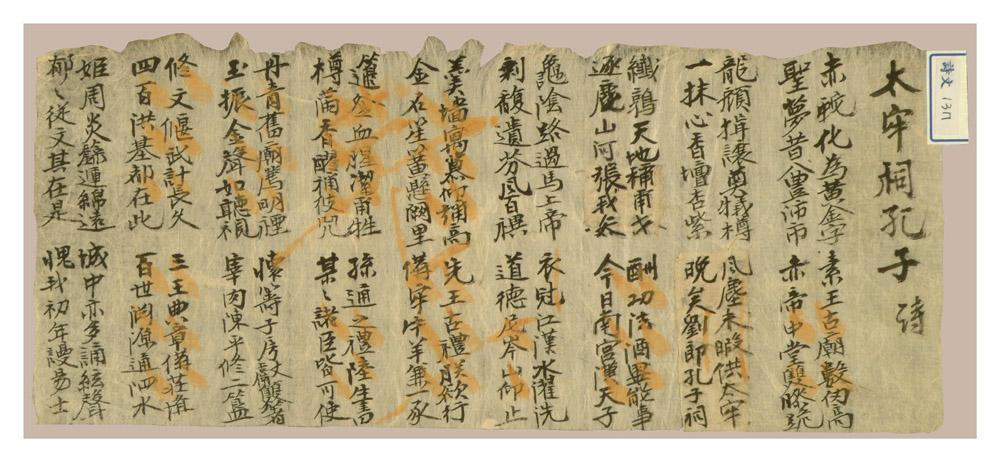 詩文 1317
太牢祠孔子 詩
赤蛇化為黃金字 素王古廟數仞高
聖夢昔 沛市 赤帝中堂雙膝跪
龍顏揖讓奠犧樽 風塵未暇供太牢
一抹心香壇杏紫 晚矣劉郎孔子祠
天地補甫戈 酬功法酒畢能事
逐鹿山河張我矢 今日南宮漢天子
龜陰路過馬上帝 衣冠江漢水濯洗
剩馥遺芬風百禩 道德尼岑山仰止
羹墻寓慕何彌高 先王古禮朕欲行
金石笙簧懸闕里 備牢牛羊兼一豕
血腥潔甫牲 孫通之禮陸生書
樽滿香醪補彼兕 某々諾臣皆可使
丹青舊廟薦明禋 籌子房文獻
玉振金聲如聽視 宰肉陳平修二簋
修文偃武計長久 三王典章備
四百洪基都在此 百世淵源通泗水
姬周炎 運綿遠 城中亦多誦絃聲
郁々從文其在是 愧我初年謾易士